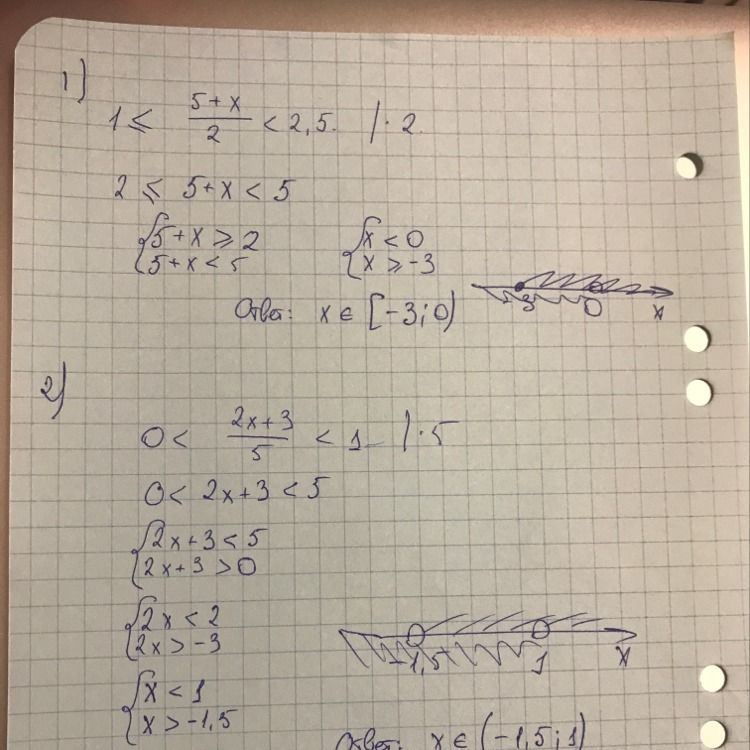 1)
1 ≤ (5+x)/2 < 2,5. | · 2.
2 ≤ 5+x < 5
{5+x ≥ 2 {x < 0
{5+x < 5 {x ≥ -3
-3 0 x
Ответ: x ∈ [-3; 0)
2)
0 < (2x+3)/5 < 1 | · 5
0 < 2x+3 < 5
{2x+3 < 5
{2x+3 > 0
{2x < 2
{2x > -3
-1,5 1 x
{x < 1
{x > -1,5
Ответ: x ∈ (-1,5; 1)